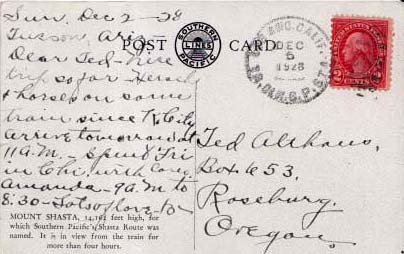 Sun, Dec 2-28
Tucson, Ariz-
Dear Ted-Nice
trip so far- French
& horses on same
train since K. City
arrive tomorrow at
11 A.M. - Spent Fri
in Chi. with Cou,
Amanda- 9 A.M to
8:30- Lots of love B-
MOUNT SHASTA, 14,162 feet high, for
which Southern Pacific's Shasta Route was
named. It is in view from the train for
more than four hours.
POST CARD
SOUTHERN
PACIFIC
LINES
ANG. CALIF.
DEC
5
1928
STA.
2 CENTS 2
Ted Althaus,
Box 653,
Roseburg,
Oregon.